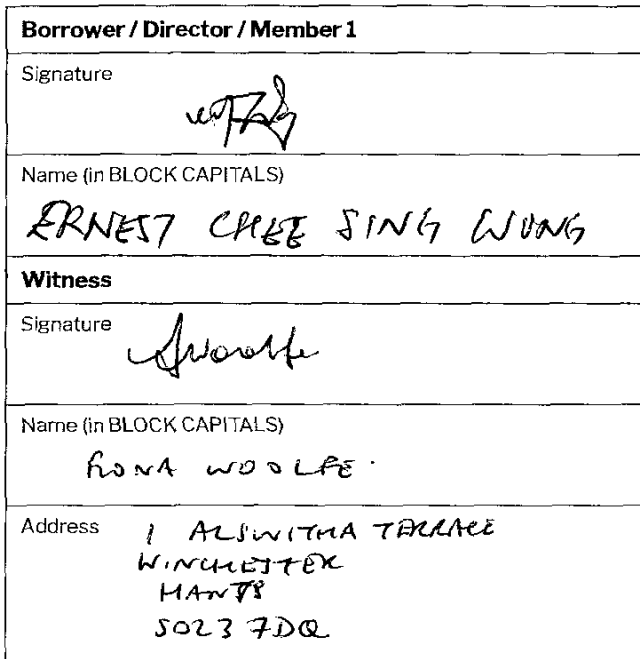 Borrower / Director / Member 1
Signature
Name (in BLOCK CAPITALS)
ERNEST CHEE SING WONG
Witness
Signature
Name (in BLOCK CAPITALS)
FIONA WOOLFE.
Address 1 ALSWITHA TERRACE
WINCHESTER
HANTS
SO23 7DQ